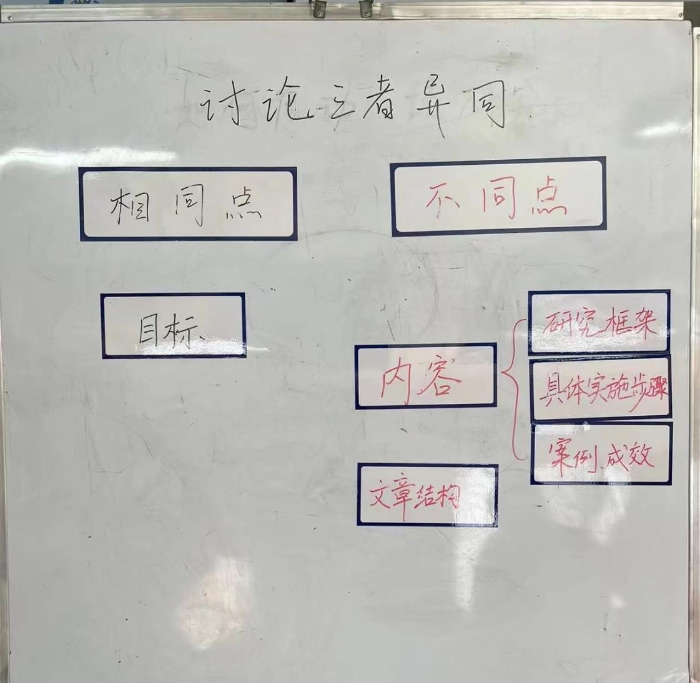 讨论三者异同
相同点
不同点
目标、
内容
研究框架
具体实施步骤
案例、成效
文章结构